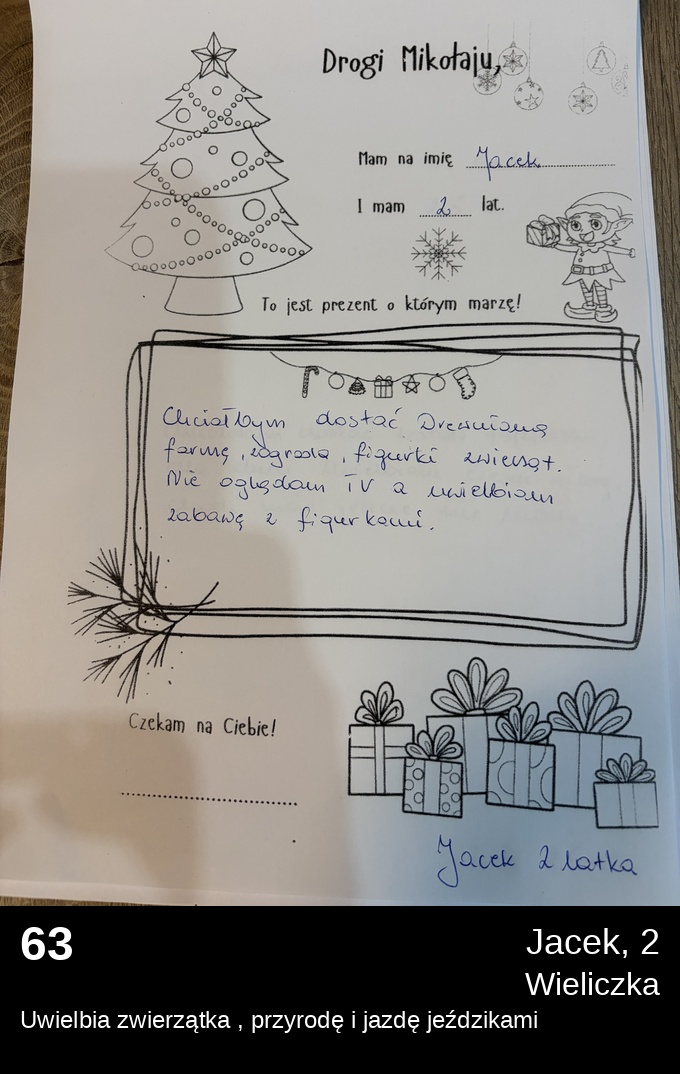 Drogi Mikołaju,
Mam na imię Jacek
I mam 2 lat.
To jest prezent o którym marzę!
Chciałbym dostać Drewnianą
farmę, zagroda, figurki zwierząt.
Nie oglądam TV a uwielbiam
zabawę z figurkami.
Czekam na Ciebie!
Jacek 2 latka
63
Jacek, 2
Wieliczka
Uwielbia zwierzątka , przyrodę i jazdę jeździkami